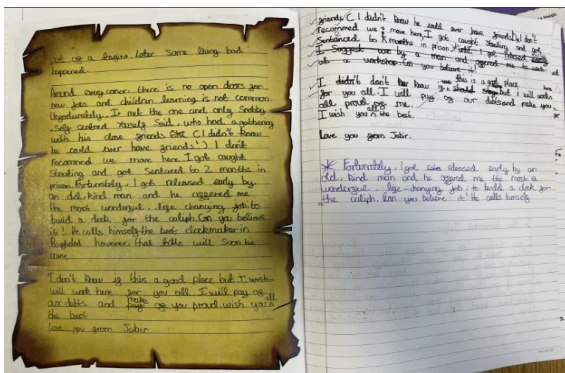 out of a begins. Later some thing bad
happened.
Around every corner, there is no open doors for
new jobs and children learning is not common.
Unfortunately, I met the one and only Snobby
, Self centred Yusufu Said, who had a gathering
with his close friends (I didn't know
he could ever have friends!) I don't
recommend we move here. I got caught
Stealing and got sentenced to 2 months in
prison. Fortunately, I got released early by
an old, kind man and he offered me
the most wonderful, life changing job to
build a clock for the caliph. Can you believe
it! He calls himself the best clockmaker in
Baghdad however that title will soon be
mine
I don't know if this a good place but I
will work here for you all. I will pay of all
our debts and make you proud. wish you
the best
love you from Jabir
friends (I didn't know he could ever have friends!) I don't
recommend we move here. I got caught stealing and got
Sentenced to months in prison.
I Suggest by a man and offered me to work
at a workshop. Can you believe
I didn't know this is a good place
for you all. I will work
all proud of me. I will pay of our debts and make you
I wish you all the best
Love you from Jabir.
* Fortunately, I got released early by an
old, kind man and he offered me the most
wonderful, life-changing job: to build a clock for
the caliph. Can you believe it! He calls himself